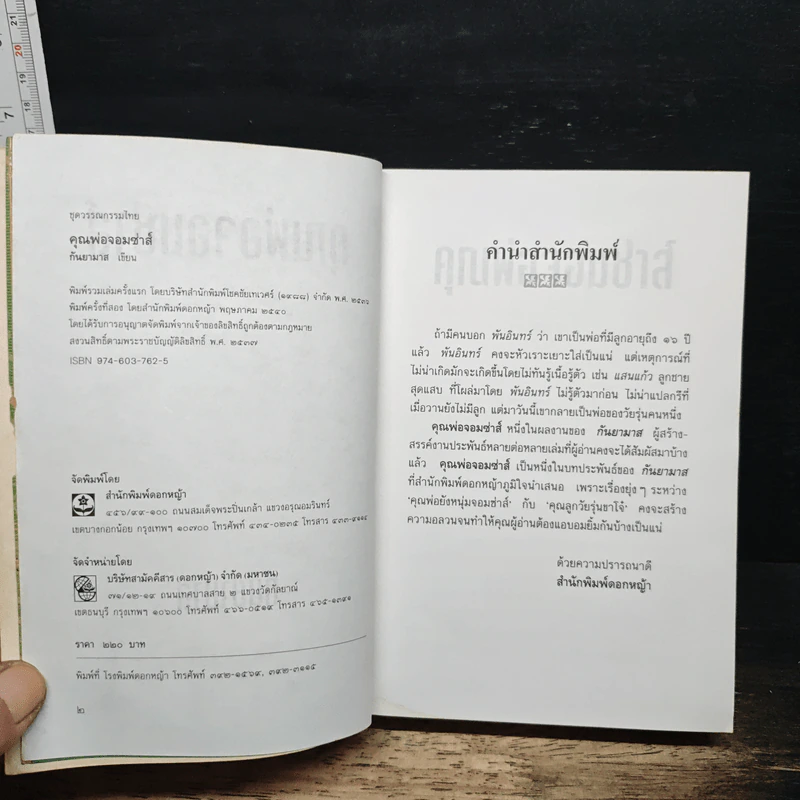 ชุดวรรณกรรมไทย
คุณพ่อจอมซ่าส์
กันยามาส เขียน
พิมพ์รวมเล่มครั้งแรก โดยบริษัทสำนักพิมพ์โชคชัยเทเวศร์ (๑๙๘๘) จำกัด พ.ศ. ๒๕๓๖
พิมพ์ครั้งที่สอง โดยสำนักพิมพ์ดอกหญ้า พฤษภาคม ๒๕๔๐
โดยได้รับการอนุญาตจัดพิมพ์จากเจ้าของลิขสิทธิ์ถูกต้องตามกฎหมาย
สงวนสิทธิ์ตามพระราชบัญญัติลิขสิทธิ์ พ.ศ. ๒๕๓๗
ISBN 974-603-762-5
จัดพิมพ์โดย
สำนักพิมพ์ดอกหญ้า
๔๕๖/๙๙-๑๐๐ ถนนสมเด็จพระปิ่นเกล้า แขวงอรุณอมรินทร์
เขตบางกอกน้อย กรุงเทพฯ ๑๐๗๐๐ โทรศัพท์ ๔๓๔-๐๒๓๕ โทรสาร ๔๓๓-๙๑๑๔
จัดจำหน่ายโดย
บริษัทสามัคคีสาร (ดอกหญ้า) จำกัด (มหาชน)
๗๑/๑๒-๑๙ ถนนเทศบาลสาย ๒ แขวงวัดกัลยาณ์
เขตธนบุรี กรุงเทพฯ ๑๐๖๐๐ โทรศัพท์ ๔๖๖-๐๕๑๙ โทรสาร ๔๖๕-๑๓๙๑
ราคา ๒๒๐ บาท
พิมพ์ที่ โรงพิมพ์ดอกหญ้า โทรศัพท์ ๓๙๒-๑๕๖๙, ๓๙๒-๓๑๑๕
๒
คำนำสำนักพิมพ์
ถ้ามีคนบอก พันอินทร์ ว่า เขาเป็นพ่อที่มีลูกอายุถึง ๑๖ ปี
แล้ว พันอินทร์ คงจะหัวเราะเยาะใส่เป็นแน่ แต่เหตุการณ์ที่
ไม่น่าเกิดมักจะเกิดขึ้นโดยไม่ทันรู้เนื้อรู้ตัว เช่น แสนแก้ว ลูกชาย
สุดแสบ ที่โผล่มาโดย พันอินทร์ ไม่รู้ตัวมาก่อน ไม่น่าแปลกรึที่
เมื่อวานยังไม่มีลูก แต่มาวันนี้เขากลายเป็นพ่อของวัยรุ่นคนหนึ่ง
คุณพ่อจอมซ่าส์ หนึ่งในผลงานของ กันยามาส ผู้สร้าง-
สรรค์งานประพันธ์หลายต่อหลายเล่มที่ผู้อ่านคงจะได้สัมผัสมาบ้าง
แล้ว คุณพ่อจอมซ่าส์ เป็นหนึ่งในบทประพันธ์ของ กันยามาส
ที่สำนักพิมพ์ดอกหญ้าภูมิใจนำเสนอ เพราะเรื่องยุ่งๆ ระหว่าง
'คุณพ่อยังหนุ่มจอมซ่าส์' กับ 'คุณลูกวัยรุ่นขาโจ๋' คงจะสร้าง
ความอลวนจนทำให้คุณผู้อ่านต้องแอบอมยิ้มกันบ้างเป็นแน่
ด้วยความปรารถนาดี
สำนักพิมพ์ดอกหญ้า